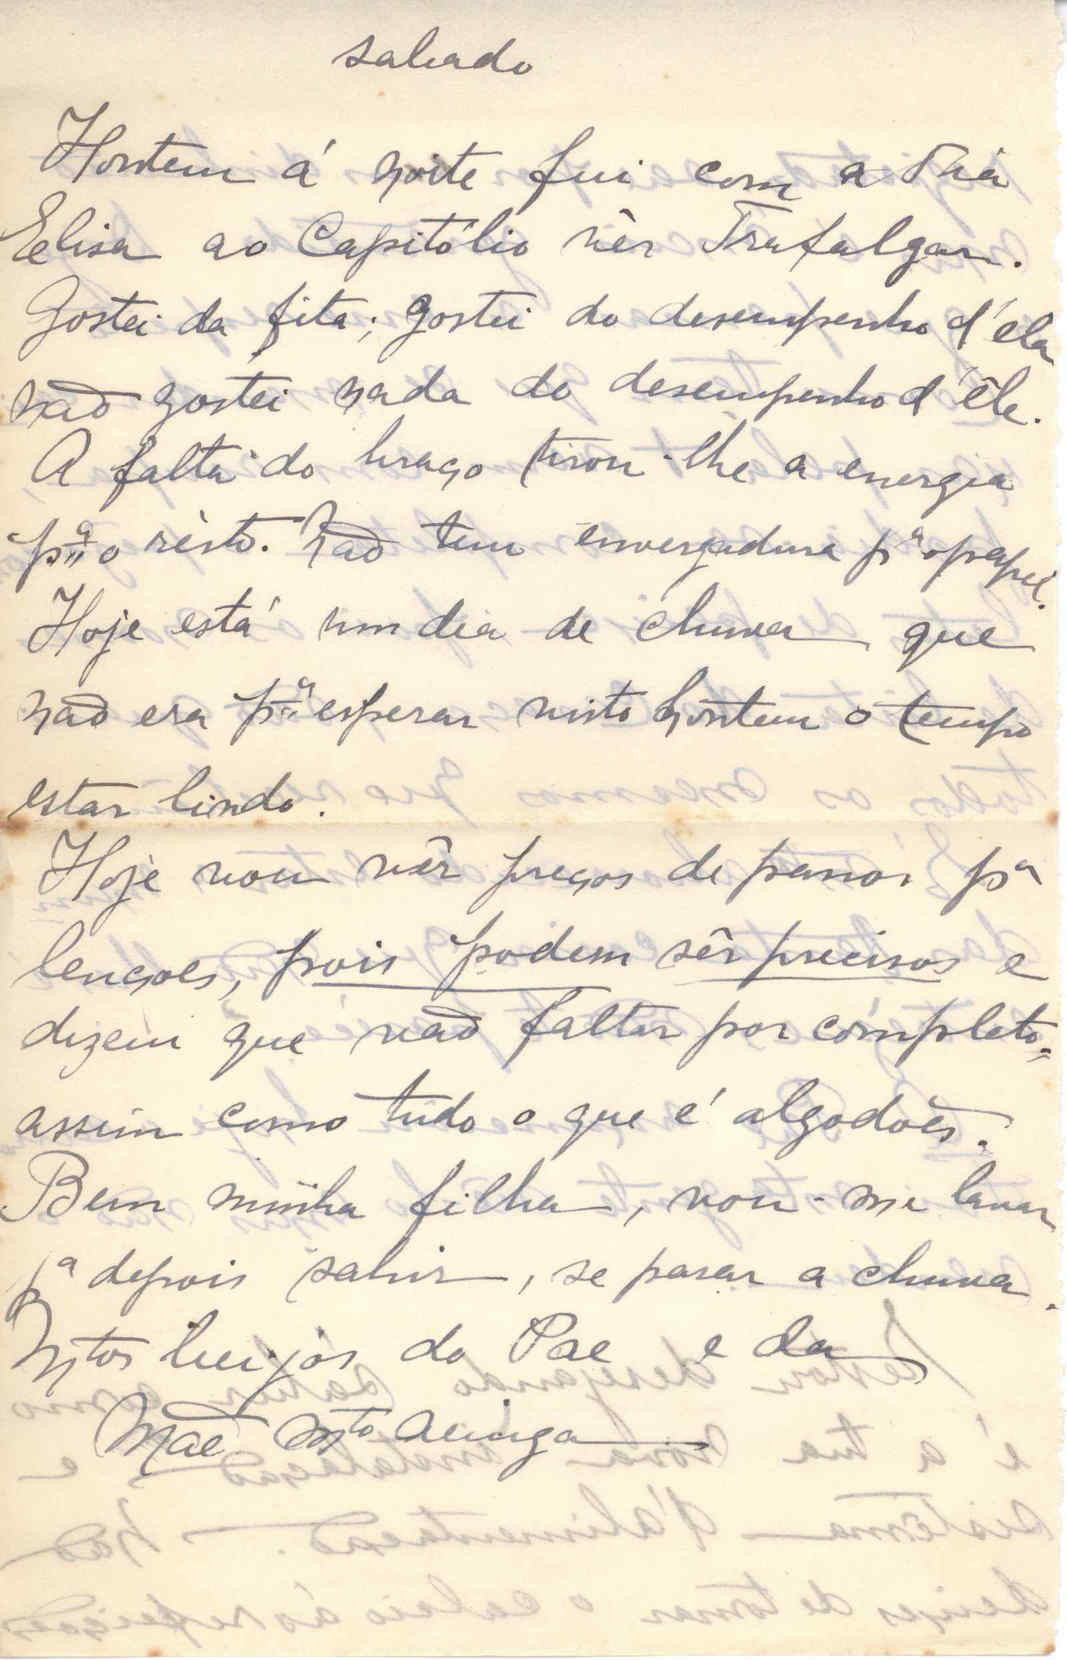 sabado
Hontem á noite fui com a Tia
Elisa ao Capitólio vêr Trafalgar.
Gostei da fita; gostei do desempenho d'ela
não gostei nada do desempenho d'êle.
A falta do braço tirou-lhe a energia
pª o résto. Não tem envergadura pª o papel.
Hoje está um dia de chuva que
não era pª esperar visto hontem o tempo
estar lindo.
Hoje vou vêr preços de panos pª
lençoes, pois podem sêr precisos e
dizem que vão faltar por completo,
assim como tudo o que é algodões.
Bem minha filha, vou-me lavar
pª depois sahir, se parar a chuva.
Mtos beijos do Pae e da
Mãe mto amiga